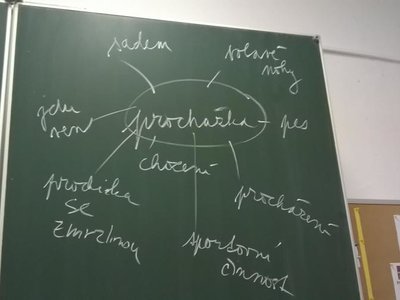 sadem
bolavé
nohy
jdu
ven
procházka
pes
chození
procházení
prodička
se
zmrzlinou
sportovní
činnost